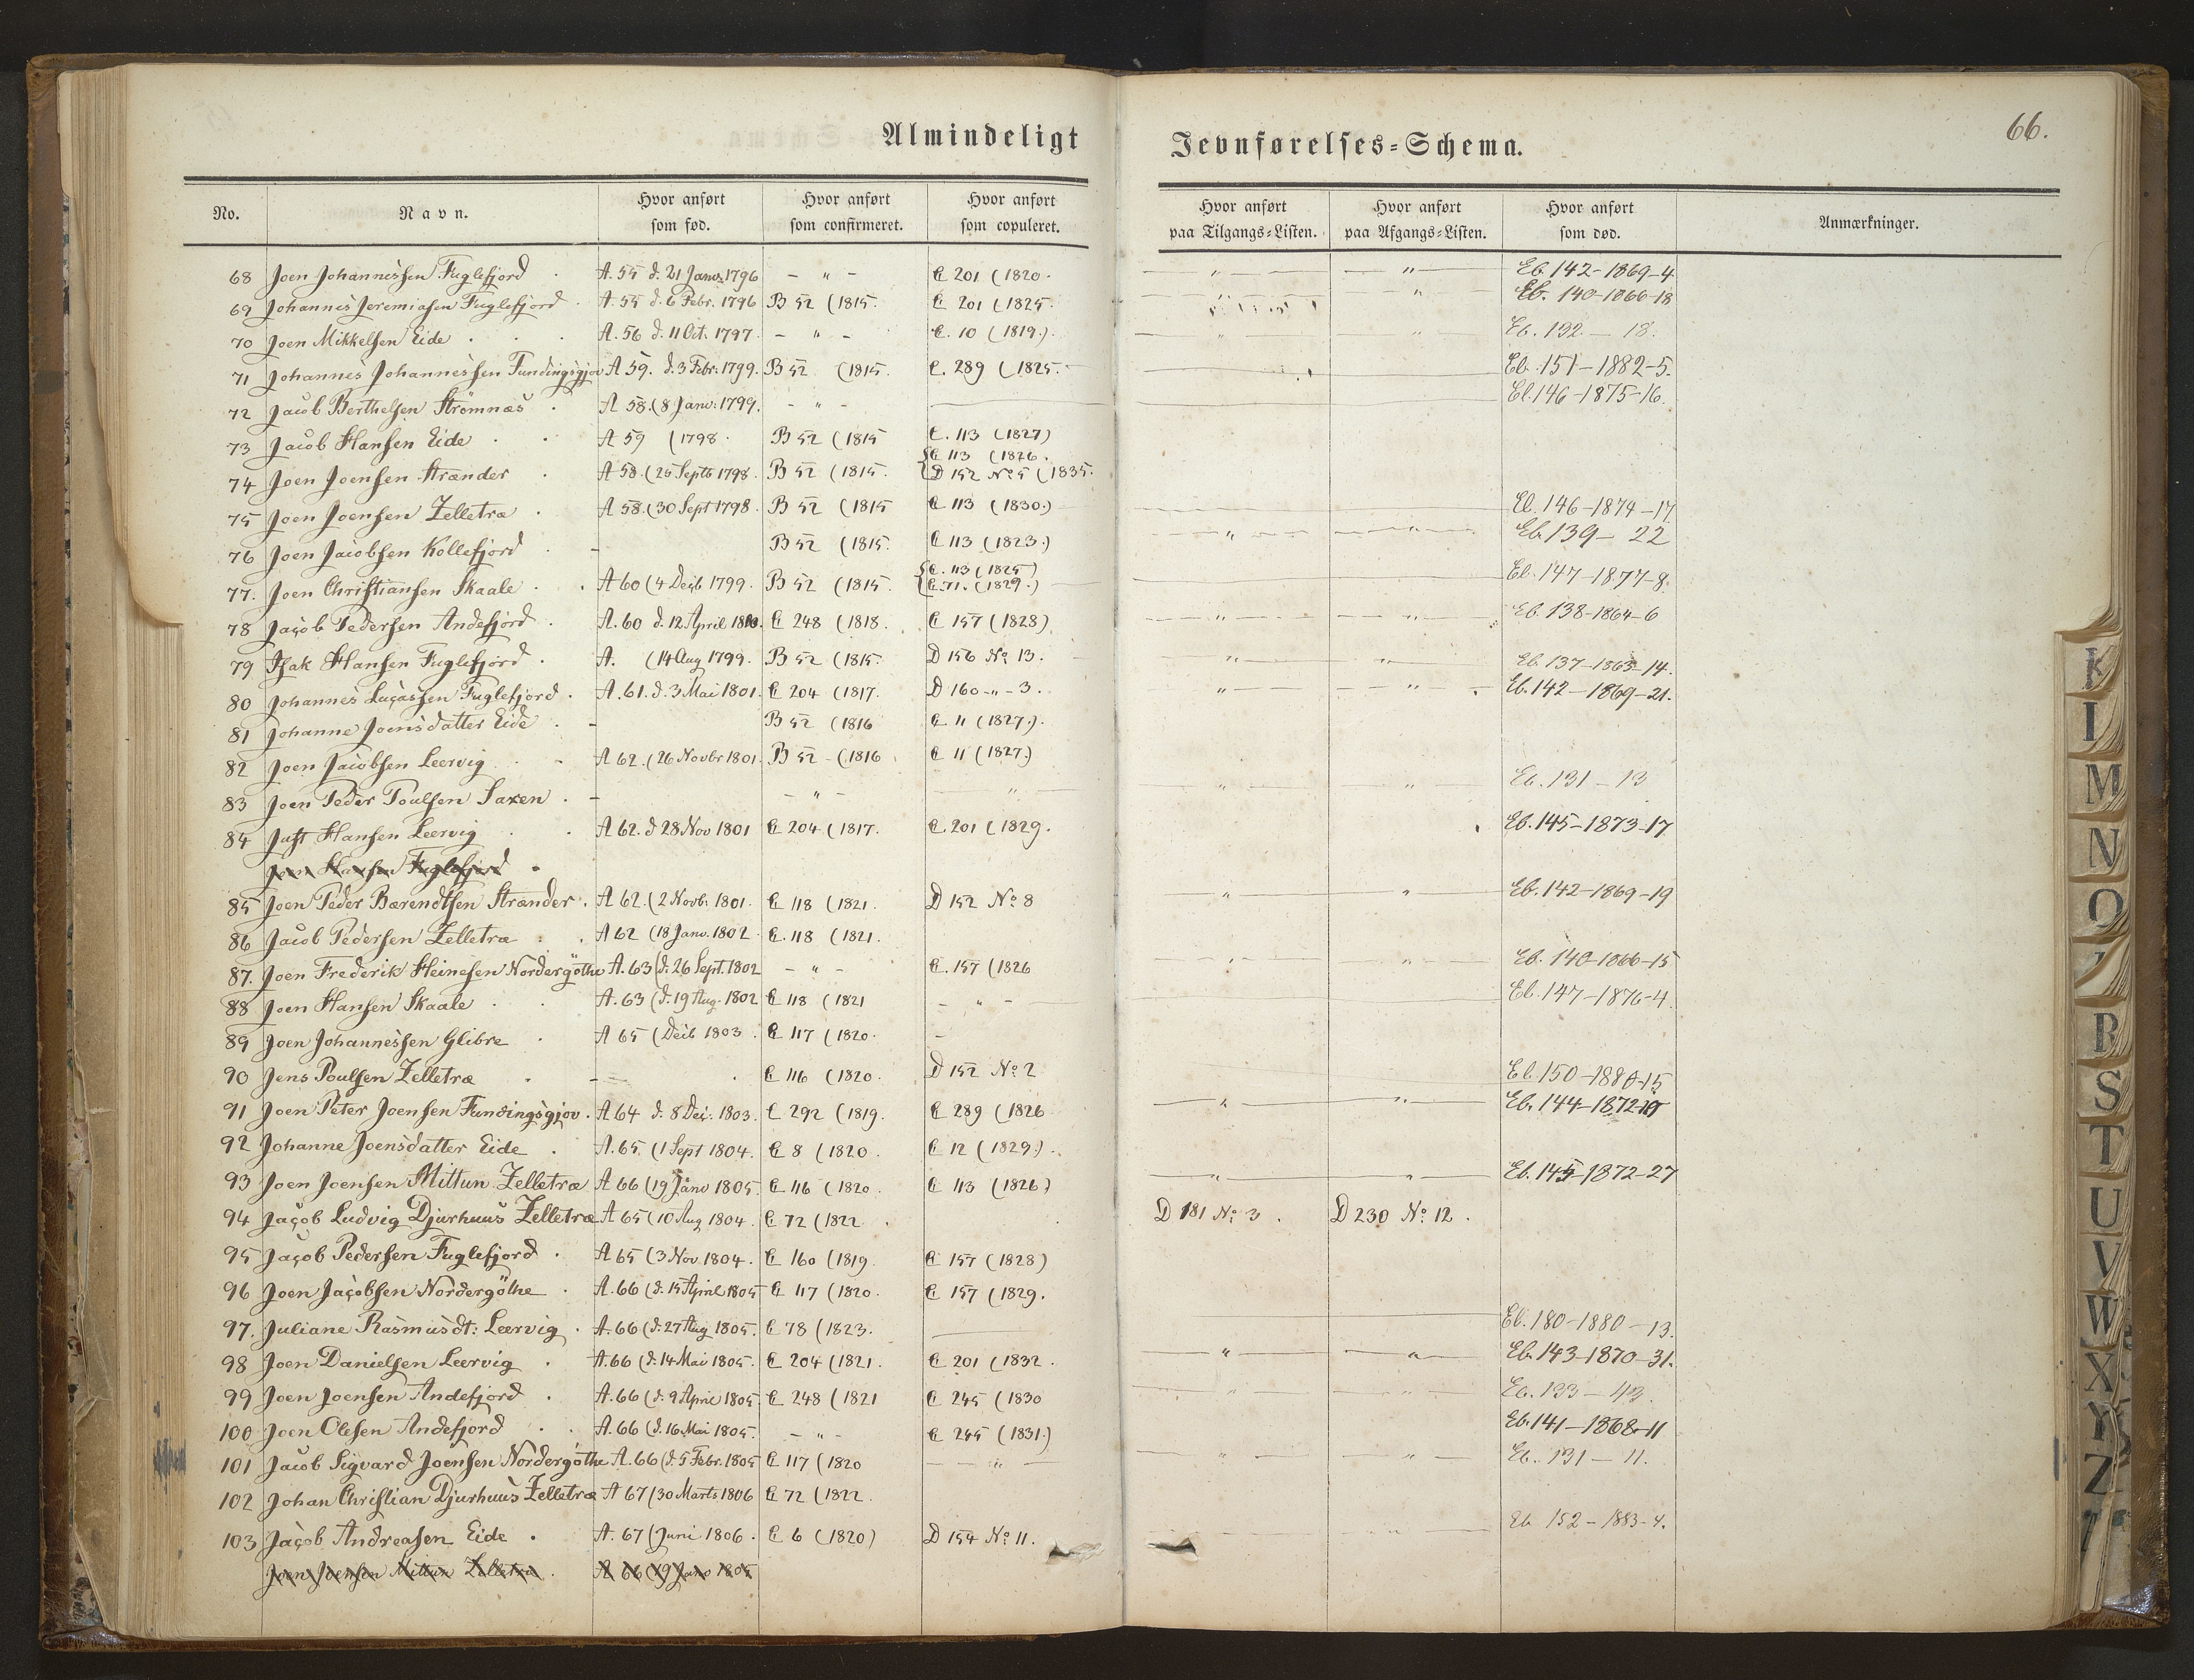 66.
Almindeligt Jevnførelses=Schema.
No. Navn. Hvor anført som fød. Hvor anført som confirmeret. Hvor anført som copuleret. Hvor anført paa Tilgangs=Listen. Hvor anført paa Afgangs=Listen. Hvor anført som død. Anmærkninger.
68 Joen Johannessen Fuglefjord A. 55 d. 21 Janv. 1796 – " – C 201 (1820. " " Eb. 142-1869-4
69 Johannes Jeremiasen Fuglefjord A. 55 d. 6 Febr. 1796 B 52 (1815. C 201 (1825. " " Eb. 140-1866-18
70 Joen Mikkelsen Eide A. 56 d. 11 Oct. 1797. – " – C. 10 (1819.) " " Eb. 132 — 18.
71 Johannes Johannessen Fundingsgjov A 59. d. 3 Febr. 1799. B 52 (1815. C. 289 (1825. Eb. 151-1882-5.
72 Jacob Berthelsen Strömnæs A 58. (8 Janv: 1799. – " – Eb. 146-1875-16.
73 Jacob Hansen Eide A 59 (1798. B 52 (1815 C. 113 (1827)
74 Joen Joensen Strænder A 58. (25 Septb 1798. B 52 (1815. C 113 (1826. D 152 No 5 (1835.
75 Joen Joensen Zelletræ A 58. (30 Sept 1798. B 52 (1815 C 113 (1830.) Eb. 146-1874-17
76 Joen Jacobsen Kollefjord – B 52 (1815. C 113 (1823.) " " Eb. 139 — 22
77. Joen Christiansen Skaale A 60 (4 Decb 1799. B 52 (1815. C. 113 (1825) C. 71. (1829.) Eb. 147-1877-8.
78 Jacob Pedersen Andefjord A. 60 d. 12 April 1800. C 248 (1818. C 157 (1828) " " Eb. 138-1864-6
79 Isak Hansen Fuglefjord A. (14 Aug 1799. B 52 (1815. D 156 No 13. " " Eb. 137-1863-14.
80 Johannes Lucassen Fuglefjord A. 61. d. 3 Mai 1801. C 204 (1817. D 160 – " – 3. " " Eb. 142-1869-21.
81 Johanne Joensdatter Eide – B 52 (1816 C 11 (1827.)
82 Joen Jacobsen Leervig A 62. (26 Novbr 1801. B 52 – (1816 C 11 (1827.)
83 Joen Peder Poulsen Saxen – – " – " " " Eb. 131 — 13
84 Just Hansen Leervig A 62. d 28 Nov 1801 C 204 (1817. C 201 (1829. Eb. 145-1873-17
Joen Hansen Fuglefjord
85 Joen Peder Bærendtsen Strænder A 62. (2 Novb. 1801. C 118 (1821. D 152 No 8 " " Eb. 142-1869-19
86 Jacob Pedersen Zelletræ A 62 (18 Janv. 1802. C. 118 (1821.
87. Joen Frederik Heinesen Nordergöthe A. 63 (d. 26 Sept. 1802 – " – C. 157 (1826 " " Eb. 140-1866-15
88 Joen Hansen Skaale A. 63 (d. 19 Aug. 1802 C 118 (1821 – " – Eb. 147-1876-4.
89 Joen Johannessen Glibre A 65 (Decb 1803. C 117 (1820. –
90 Jens Poulsen Zelletræ – C 116 (1820. D 152 No 2 Eb. 150-1880-15
91 Joen Peter Joensen Fundingsgjov A 64 d. 8 Dec: 1803. C 292 (1819. C 289 (1826 " " Eb. 144-1872-
92 Johanne Joensdatter Eide A. 65 (1 Sept 1804. C 8 (1820. C 12 (1829.)
93 Joen Joensen Mittun Zelletræ A 66 (19 Janv 1805. C 116 (1820. C 113 (1826) " " Eb. 145-1872-27
94 Jacob Ludvig Djurhuus Zelletræ A 65 (10 Aug 1804. C 72 (1822. D 181 No 3. D 230 No 12.
95 Jacob Pedersen Fuglefjord A 65 (3 Nov 1804. C 160 (1819. C 157 (1828)
96 Joen Jacobsen Nordergöthe A. 66 (d. 15 April 1805 C 117 (1820. C 157 (1829.
97. Juliane Rasmusdt: Leervig A. 66 (d. 27 Aug 1805. C 78 (1823. Eb. 180-1880-13.
98 Joen Danielsen Leervig A. 66 (d. 14 Mai 1805. C 204 (1821. C 201 (1832. " " Eb. 143-1870-31.
99 Joen Joensen Andefjord A. 66 (d. 9 April 1805. C 248 (1821 C 245 (1830 " " Eb. 133 — 43.
100 Joen Olesen Andefjord A. 66 (d. 16 Mai 1805. – " – C 245 (1831.) Eb. 141-1868-11
101 Jacob Sigvard Joensen Nordergöthe A. 66 (d. 5 Febr. 1805 C 117 (1820 " " " Eb. 131 — 11.
102 Johan Christian Djurhuus Zelletræ A 67 (30 Marts 1806 C 72 (1822.
103 Jacob Andreasen Eide A. 67 (Juni 1806. C 6 (1820) D 154 No 11. Eb 152-1883-4.
Joen Joensen Mittun Zelletræ A 66 (19 Janv 1805
K
M
N
O
R
S
T
U
V
W
X
Y
Z